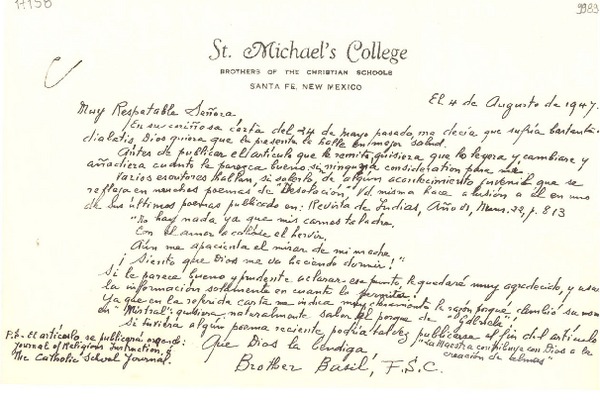 A156
9989
St. Michael's College
BROTHERS OF THE CHRISTIAN SCHOOLS
SANTA FE, NEW MEXICO
El 4 de Augusto de 1947.
Muy Respetable Señora
En su cariñosa carta del 24 de mayo pasado, me decía que sufría bastante
diabetis. Dios quiera que la presente la halle en mejor salud.
Antes de publicar el artículo que le remito, quisiera que lo leyera y, cambiare y
añadiera cuanto le parezca bueno sin ninguna consideration para
Varios escritores hablan de algún acontecimiento juvenil que se
refleja en muchos poemas de "Desolación". Vd. misma hace alusión a él en uno
de sus últimos poemas publicado en: Revista de Indias, Año Num. 22, p. 813
"No hay nada ya que mis carnes taladre.
Con el amor
Aún me apacienta el mirar de mi madre.
¡Siento que Dios me va haciendo dormir!"
Si le parece bueno y prudente aclarar ese punto, le quedaré muy agradecido, y usaré
la información solamente en cuanto lo permita.
Ya que en la referida carta me indica muy claramente la razón porque cambió su nombre
en "Mistral" quisiera naturalmente saber el porque de "Gabriela".
Si tuviera algún poema reciente, podría talvez publicarse al fin del artículo
"La Maestra contribuye con Dios a la
creación de almas"
Que Dios la bendiga,
Brother Basil, F.S.C.
P.S. El artículo se publicará en
Journal of Religious Instruction, &
The Catholic School Journal.